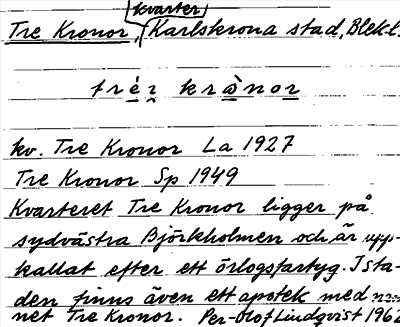 kvarter
Tre Kronor, Karlskrona stad, Blek.l.
tré̱r krò̱no̱r
kv. Tre Kronor La 1927
Tre Kronor Sp 1949
Kvarteret Tre Kronor ligger på
sydvästra Björkholmen och är upp-
kallat efter ett örlogsfartyg. I sta-
den finns även ett apotek med nam-
net Tre Kronor. Per-Olof Lindqvist 1962